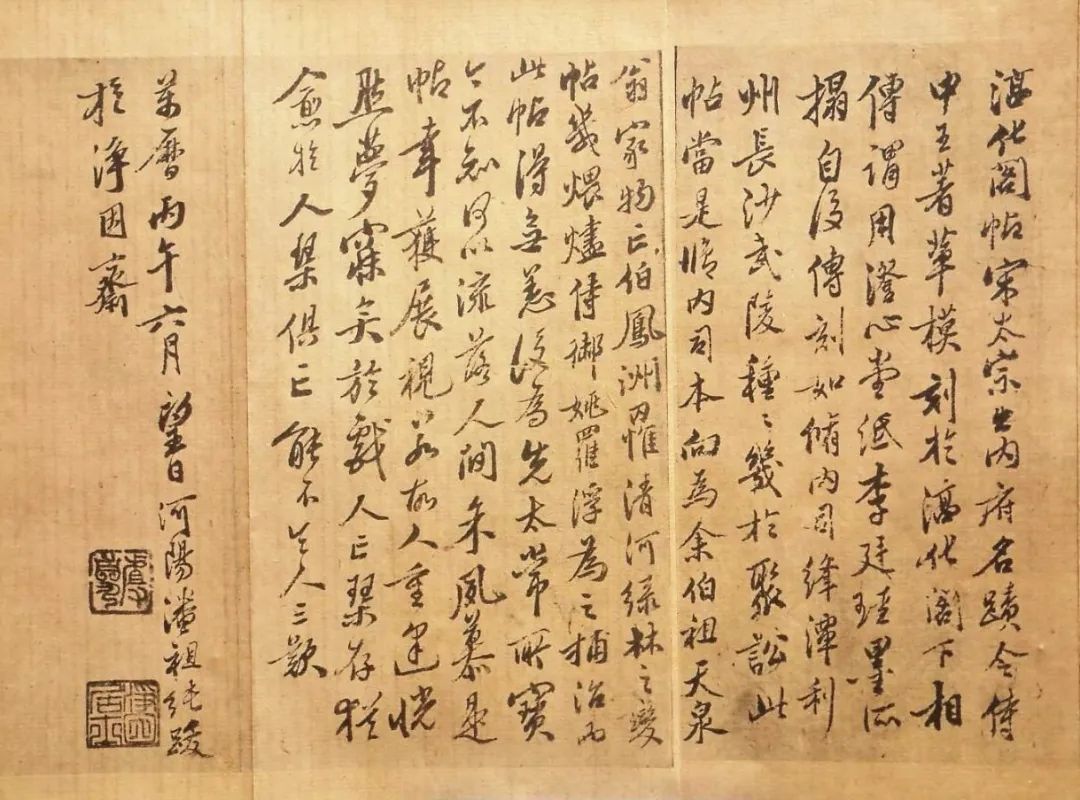 淳化閣帖宋太宗出內府名蹟令侍
中王著草模刻於淳化閣下相
傳謂用澄心堂紙李廷珪墨所
搨自後傳刻如脩內司絳潭利
州長沙武陵種〻幾於聚訟此
帖當是脩內司本向為余伯祖天泉
翁家物亡伯鳳洲罹清河綠林之變
帖幾煨燼侍御姚羅浮為之捕治而
此帖得無恙後為先太常所寶
今不知何以流落人間余夙慕是
帖幸獲展視若故人重逢恍
然夢寐矣於戲人亡琴存猶
愈於人琴俱亡能不令人三歎
萬曆丙午六月望日河陽潘祖純跋
於淨因齋